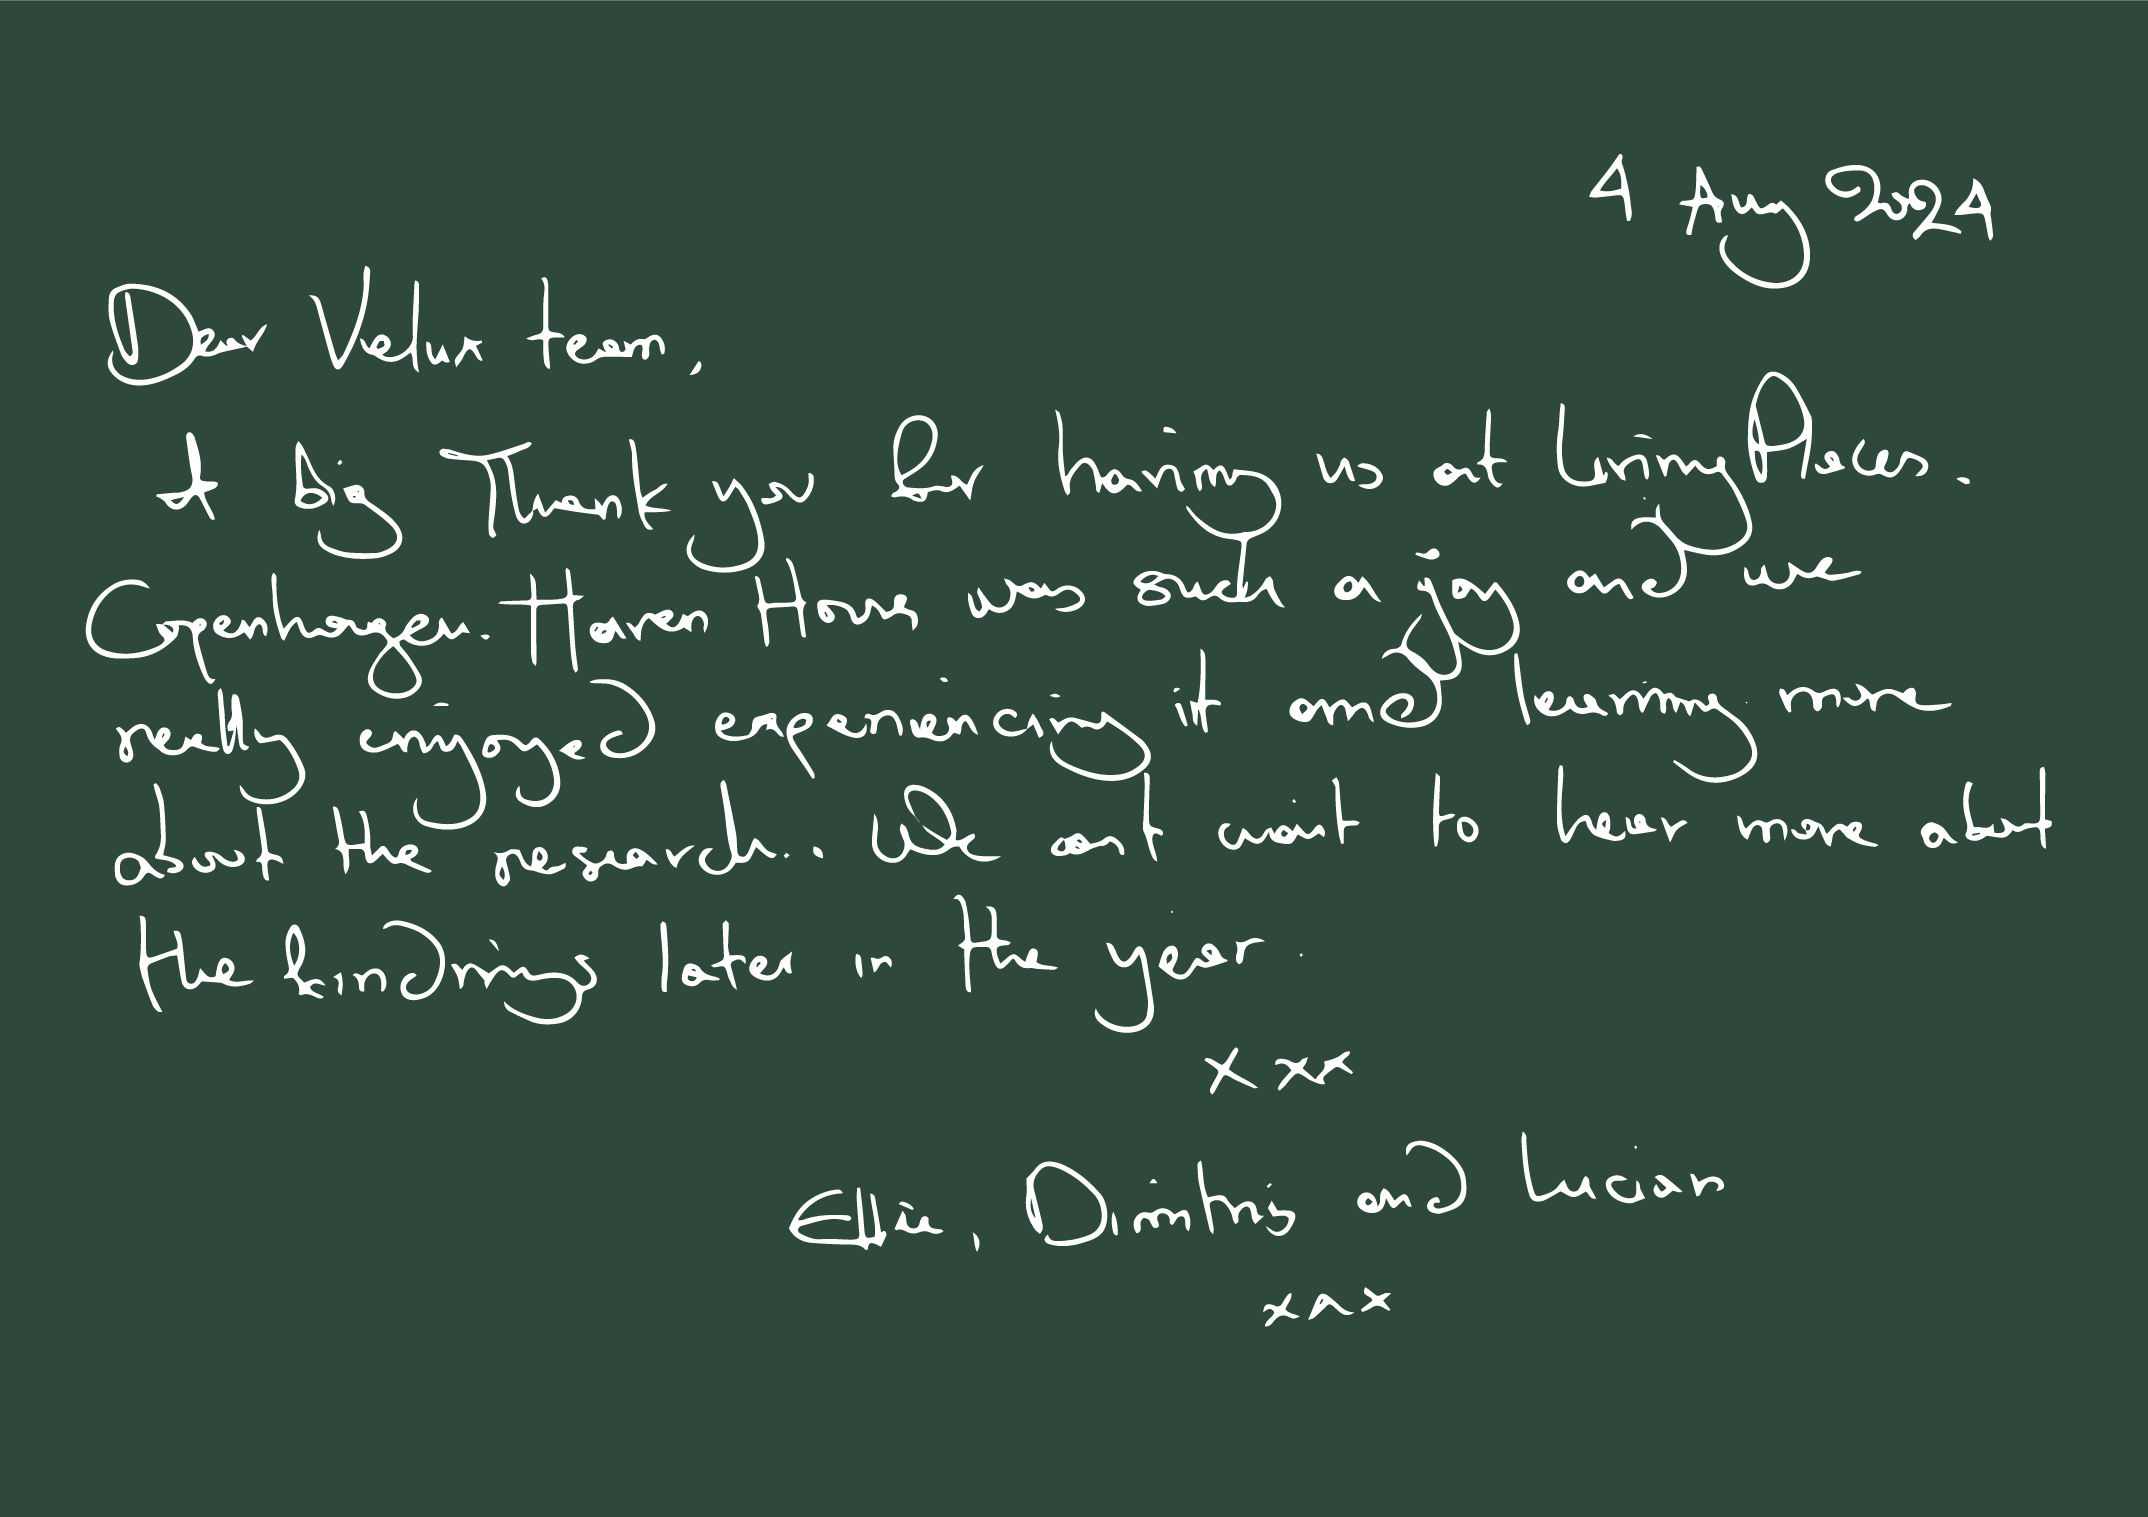 4 Aug 2024
Dear Velux team,
A big Thank you for having us at Living Places.
Copenhagen. Haven House was such a joy and we
really enjoyed experiencing it and learning more
about the research.. We can't wait to hear more about
the findings later in the year.
x xx
Ellie, Dimitris and Lucian
xxx